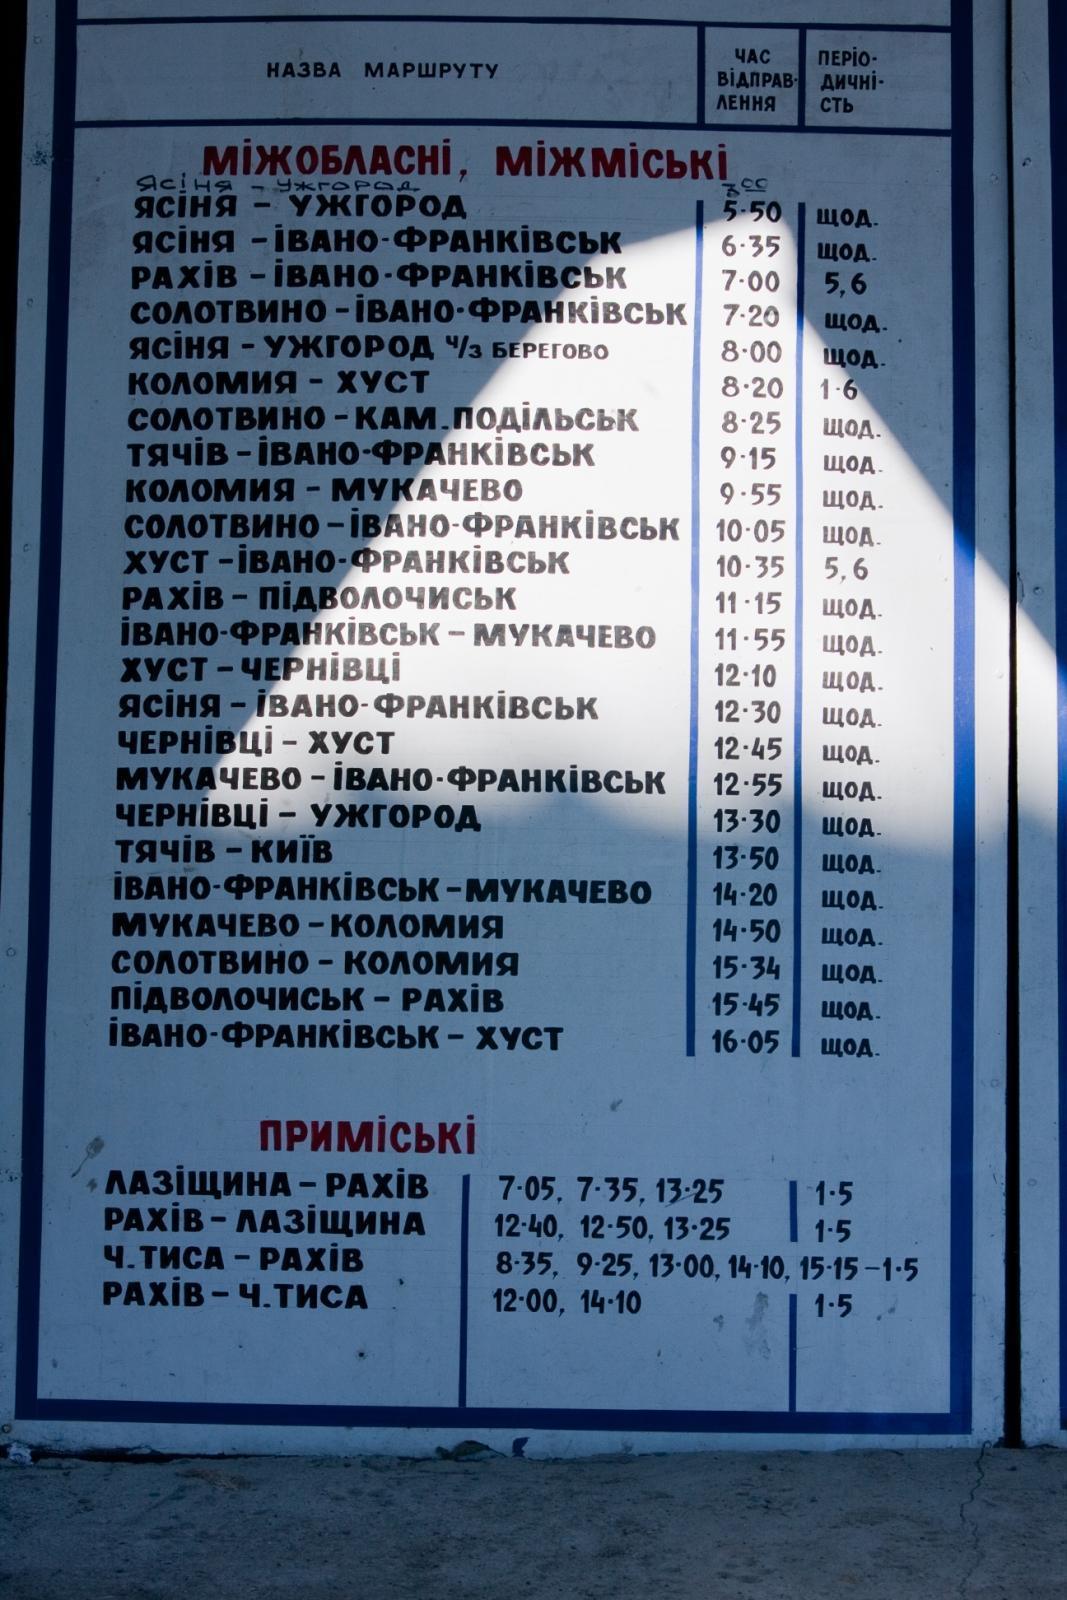 НАЗВА МАРШРУТУ
ЧАС ВІДПРАВ-ЛЕННЯ
ПЕРІО-ДИЧНІ-СТЬ
МІЖОБЛАСНІ, МІЖМІСЬКІ
ЯСІНЯ - УЖГОРОД 3 00
ЯСІНЯ - УЖГОРОД 5-50 ЩОД.
ЯСІНЯ - ІВАНО-ФРАНКІВСЬК 6-35 ЩОД.
РАХІВ - ІВАНО-ФРАНКІВСЬК 7-00 5,6
СОЛОТВИНО - ІВАНО-ФРАНКІВСЬК 7-20 ЩОД.
ЯСІНЯ - УЖГОРОД Ч/З БЕРЕГОВО 8-00 ЩОД.
КОЛОМИЯ - ХУСТ 8-20 1-6
СОЛОТВИНО - КАМ.ПОДІЛЬСЬК 8-25 ЩОД.
ТЯЧІВ - ІВАНО-ФРАНКІВСЬК 9-15 ЩОД.
КОЛОМИЯ - МУКАЧЕВО 9-55 ЩОД.
СОЛОТВИНО - ІВАНО-ФРАНКІВСЬК 10-05 ЩОД.
ХУСТ - ІВАНО-ФРАНКІВСЬК 10-35 5,6
РАХІВ - ПІДВОЛОЧИСЬК 11-15 ЩОД.
ІВАНО-ФРАНКІВСЬК - МУКАЧЕВО 11-55 ЩОД.
ХУСТ - ЧЕРНІВЦІ 12-10 ЩОД.
ЯСІНЯ - ІВАНО-ФРАНКІВСЬК 12-30 ЩОД.
ЧЕРНІВЦІ - ХУСТ 12-45 ЩОД.
МУКАЧЕВО - ІВАНО-ФРАНКІВСЬК 12-55 ЩОД.
ЧЕРНІВЦІ - УЖГОРОД 13-30 ЩОД.
ТЯЧІВ - КИЇВ 13-50 ЩОД.
ІВАНО-ФРАНКІВСЬК - МУКАЧЕВО 14-20 ЩОД.
МУКАЧЕВО - КОЛОМИЯ 14-50 ЩОД.
СОЛОТВИНО - КОЛОМИЯ 15-34 ЩОД.
ПІДВОЛОЧИСЬК - РАХІВ 15-45 ЩОД.
ІВАНО-ФРАНКІВСЬК - ХУСТ 16-05 ЩОД.
ПРИМІСЬКІ
ЛАЗІЩИНА - РАХІВ 7-05, 7-35, 13-25 1-5
РАХІВ - ЛАЗІЩИНА 12-40, 12-50, 13-25 1-5
Ч.ТИСА - РАХІВ 8-35, 9-25, 13-00, 14-10, 15-15 - 1-5
РАХІВ - Ч.ТИСА 12-00, 14-10 1-5